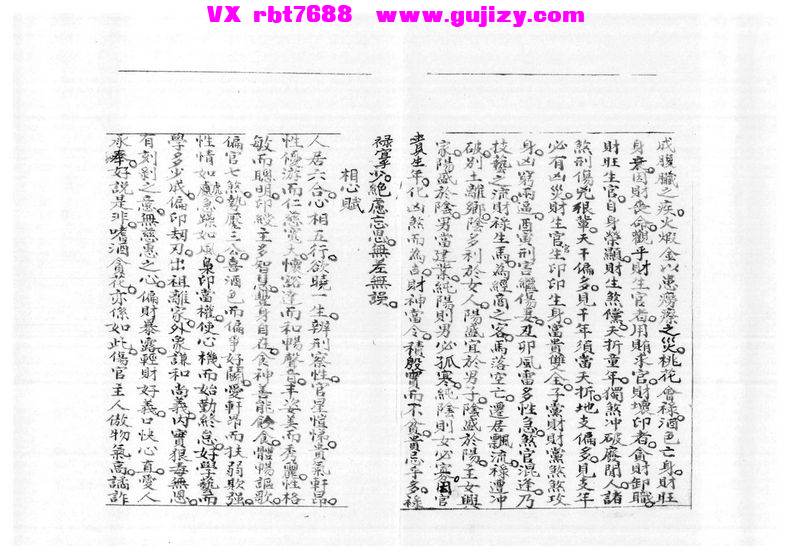 VX rbt7688 www.gujizy.com
成膿臟之疾火煅金以患癆瘵之災桃花會祿酒色亡身財旺
身衰因財喪命觀乎財生官者用賄求官財壞印者貪財卸職
財旺生官自身榮顯財生煞黨夭折童年獨煞冲破廢閒人諸
煞刑傷兇狠輩天干偏多見干年須當夭折地支偏多見支年
必有凶災財生官官生印印生身富貴雙全子黨財財黨煞煞攻
身凶窮兩逼酉寅刑害繼傷妻丑卯風雷多性急煞官混逢乃
技藝之流財祿生馬為經商之客馬落空亡遷居飄流祿遭冲
破別土離鄉陰多利於女人陽盛宜於男子陰盛於陽主女興
家陽盛於陰男當建業純陽則男必孤寒純陰則女必寡困官
貴生年化凶煞而為吉財神當令積殷實而不貪貴忌乎多祿
祿寧少絕慮忘思無差無誤
相心賦
人居六合心相五行欲曉一生辨刑察性官星愷悌貴氣軒昂
性優游而仁慈寬大懷豁達而和暢聲音丰姿美而秀麗性格
敏而聰明印綬主多智慧豐身自在食神善能飲食體暢謳歌
偏官七煞執壓三公喜酒色而偏爭好鬬愛軒昂而扶弱欺強
性情如虎急躁如風梟印當權使心機而始勤終怠好學藝而
學多少成偏印刧刃出祖離家外象謙和尚義內實狠毒無恩
有刻剝之意無慈惠之心偏財暴露輕財好義口快心直愛人
承奉好說是非嗜酒貪花亦係如此傷官主人傲物氣高譎詐